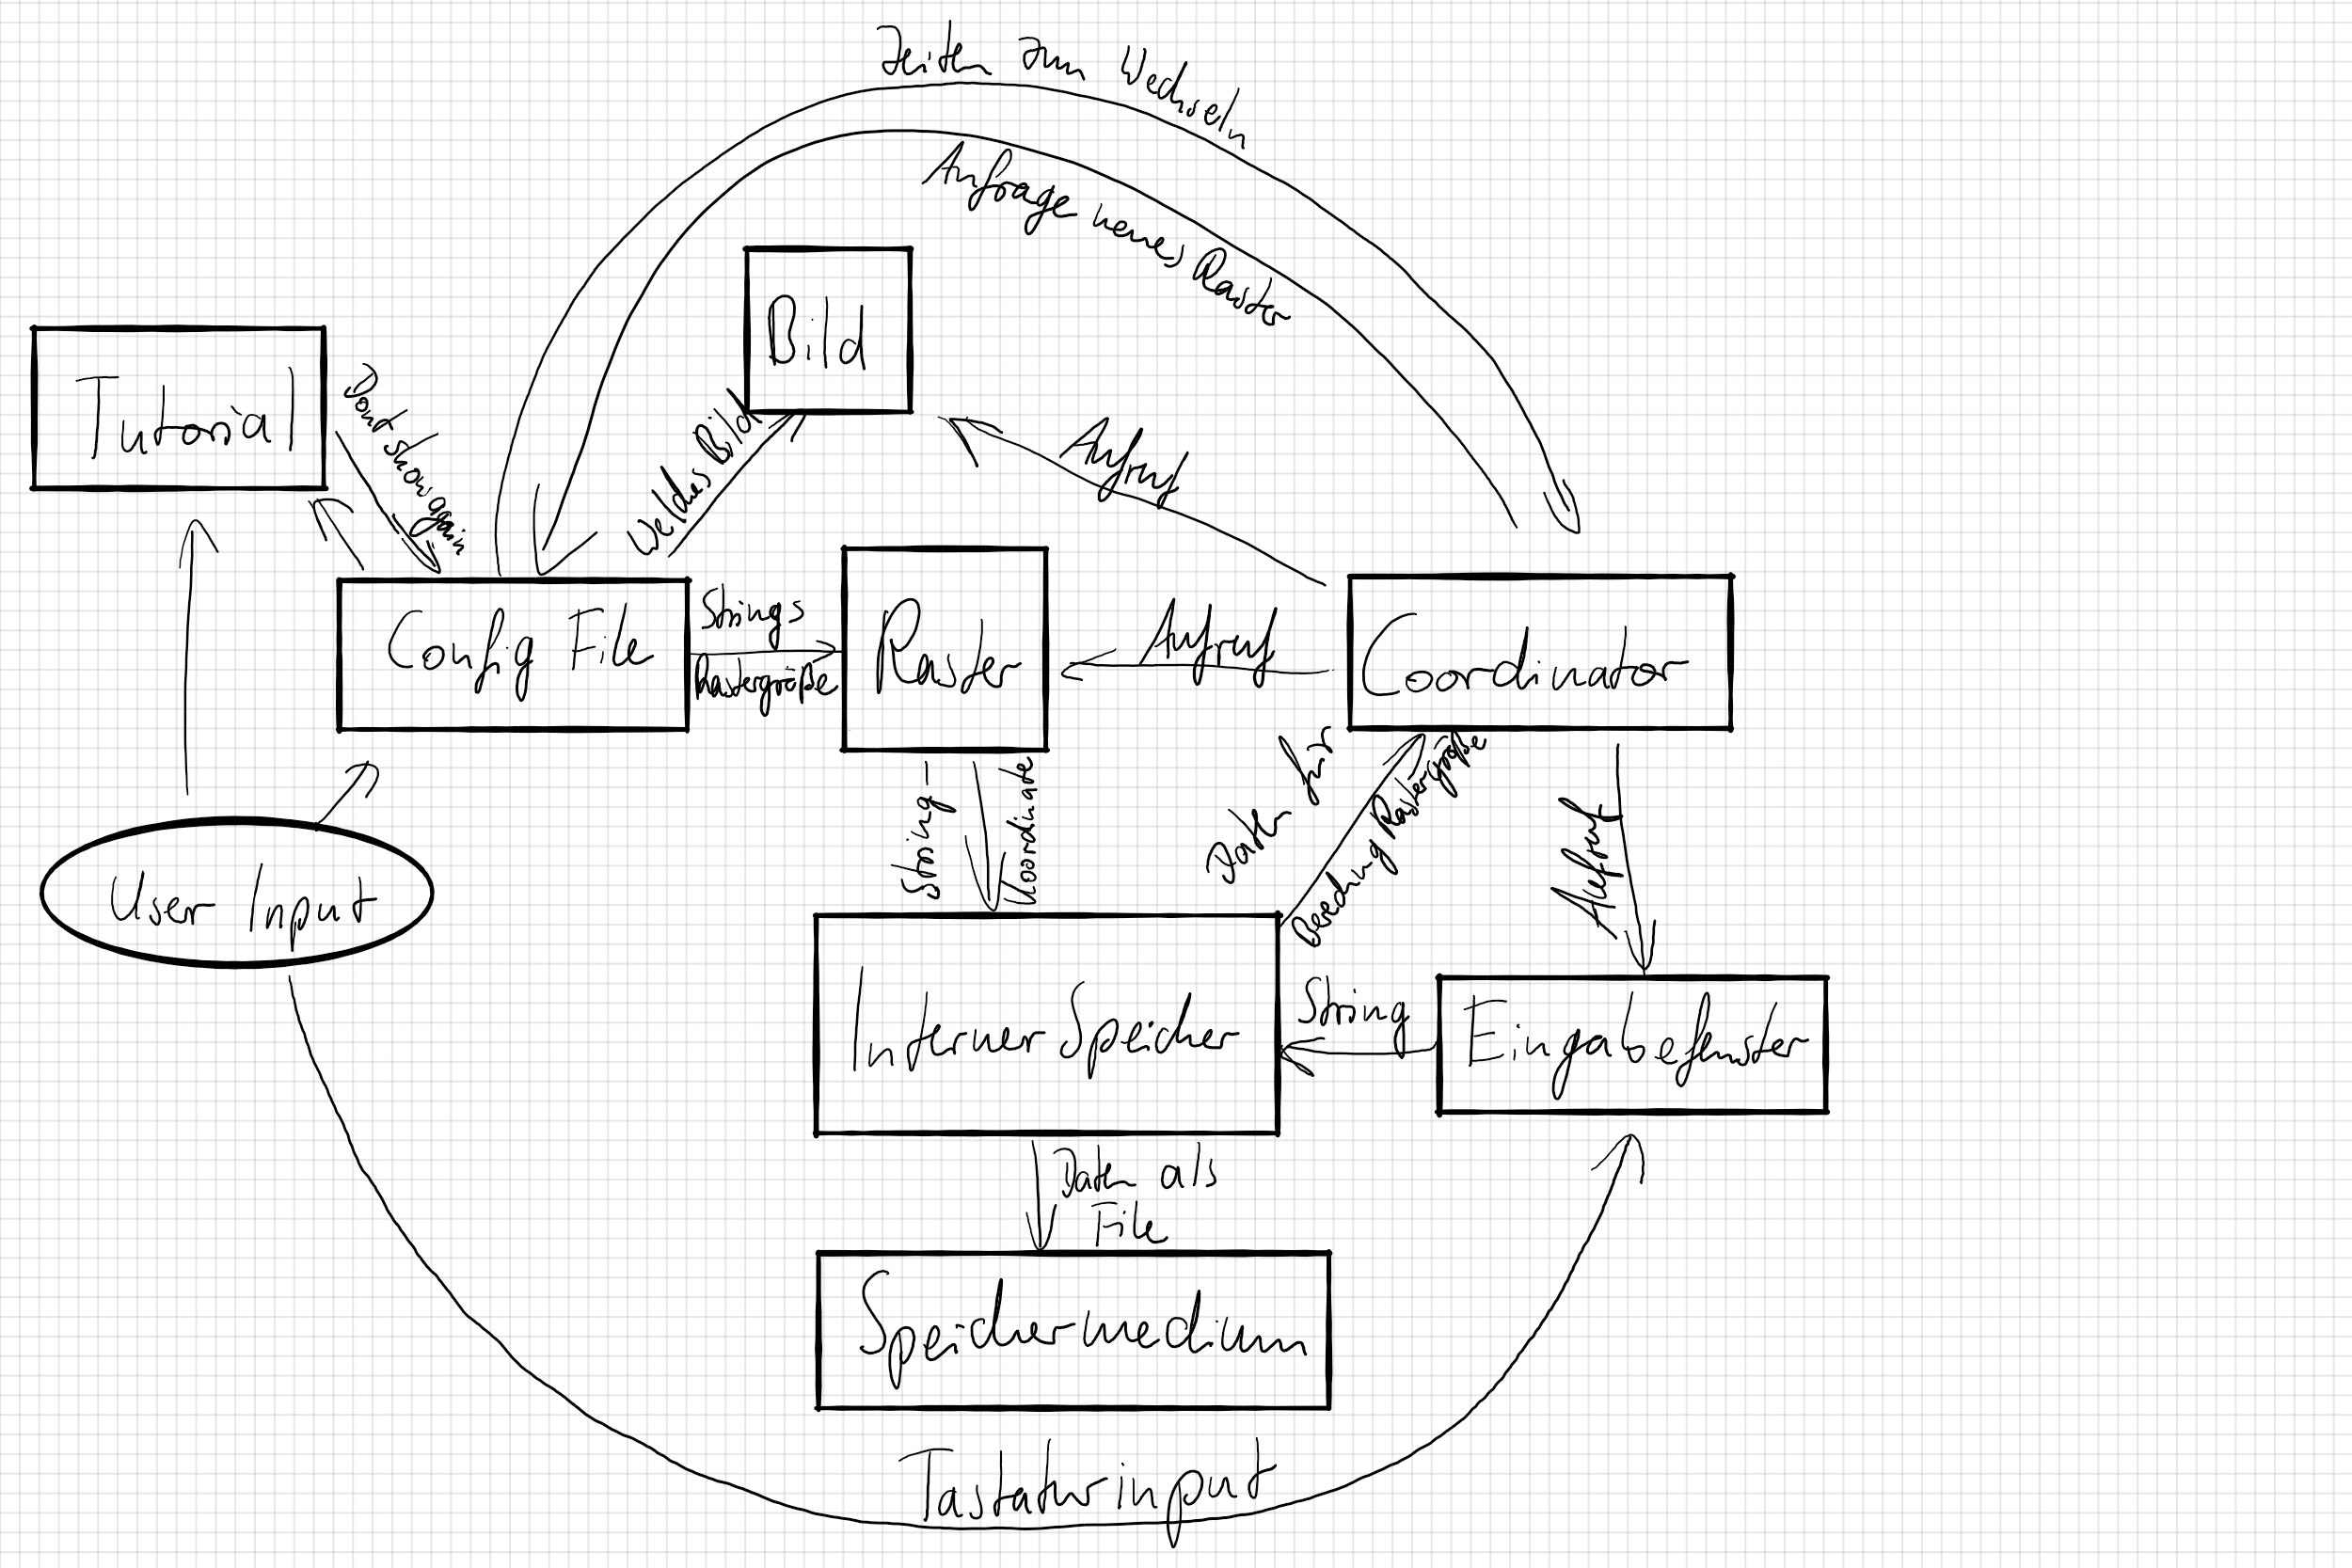 Zeiten zum Wechseln
Anfrage neues Raster
Bild
Tutorial
Dont show again
Welches Bild
Aufruf
Config File
Strings
Rastergröße
Raster
Aufruf
Coordinator
String-
Koordinate
Daten für
Berechnung Rastergröße
Aufruf
User Input
Interner Speicher
String
Eingabefenster
Daten als
File
Speichermedium
Tastaturinput